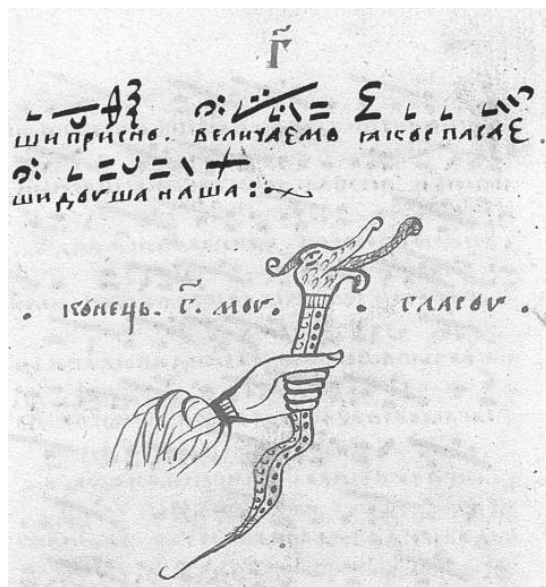 г҃
ши присно. величаємо ꙗкоспасає
шидоушанаша:~
· конець. г҃. моу. · гласоу .